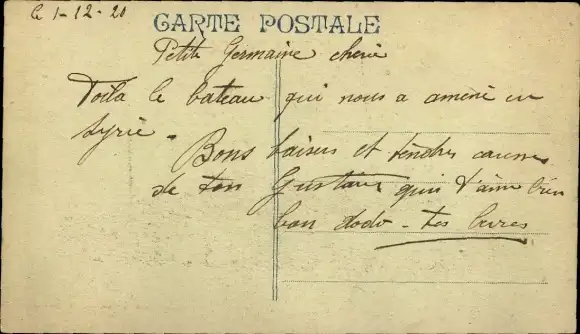 le 1-12-20
CARTE POSTALE
Petite Germaine cherie
Voila le bateau qui nous a amené en
Syrie -
Bons baisers et tendres caresses
de ton Gustave qui t'aime bien
bon dodo - tes livres